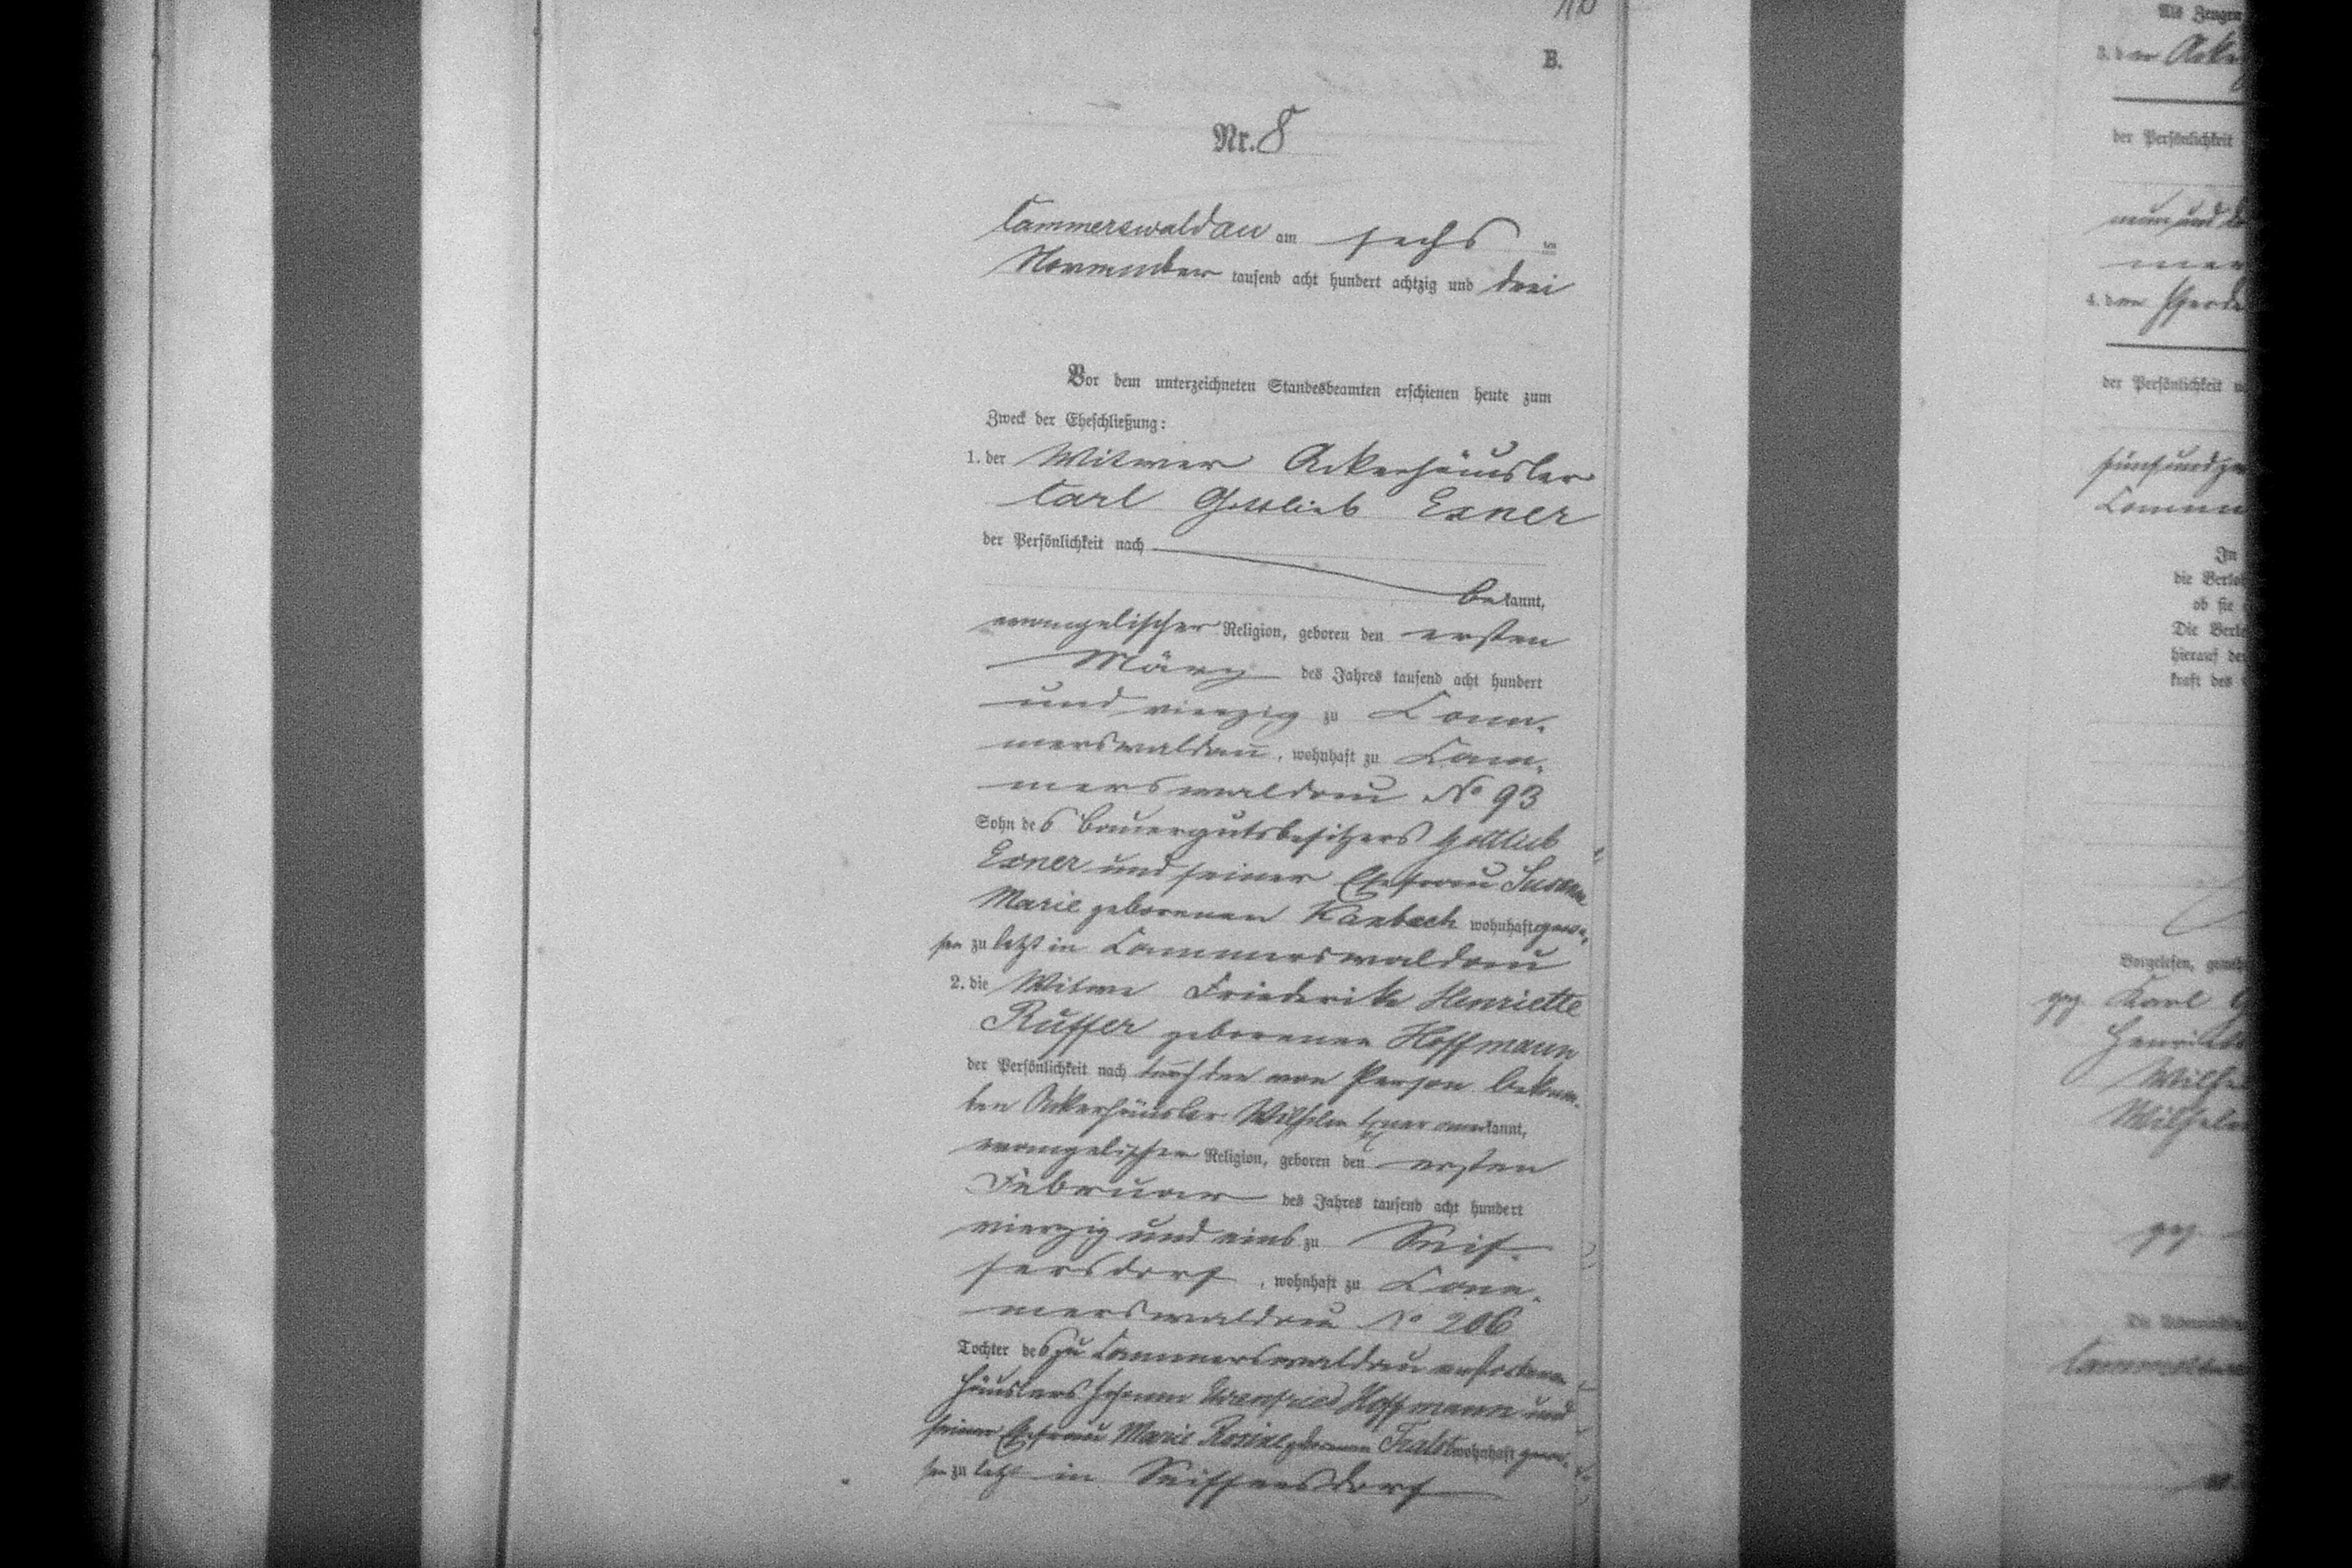 B.
Nr. 8
Cammerswaldau am sechs ten
November tausend acht hundert achtzig und drei
Vor dem unterzeichneten Standesbeamten erschienen heute zum
Zweck der Eheschließung:
1. der Witwer Ackerhäusler
Carl Gottlieb Exner
der Persönlichkeit nach
bekannt,
evangelischer Religion, geboren den ersten
März des Jahres tausend acht hundert
und vierzig zu Cam-
merswaldau, wohnhaft zu Cam-
merswaldau No 93
Sohn des Bauergutsbesitzers Gottlieb
Exner und seiner Ehefrau Susanna
Marie geborenen wohnhaft gewe-
sen zu letzt in Cammerswaldau
2. die Witwe Friederike Henriette
Ruffer geborene Hoffmann
der Persönlichkeit nach durch den von Person bekann-
ten Ackerhäusler Wilhelm Exner anerkannt,
evangelischer Religion, geboren den ersten
Februar des Jahres tausend acht hundert
vierzig und eins zu Seif-
fersdorf, wohnhaft zu Cam-
merswaldau No 206
Tochter des zu Cammerswaldau verstorbenen
Häuslers Johann Ehrenfried Hoffmann und
seiner Ehefrau Marie Rosine geborenen wohnhaft gewe-
sen zu letzt in Seiffersdorf
Als Zeugen
3. der
der Persönlichkeit
4. der
der Persönlichkeit
In
die Verlo
ob sie
Die Verlo
hierauf
kraft des
Vorgelesen,
gez. Karl